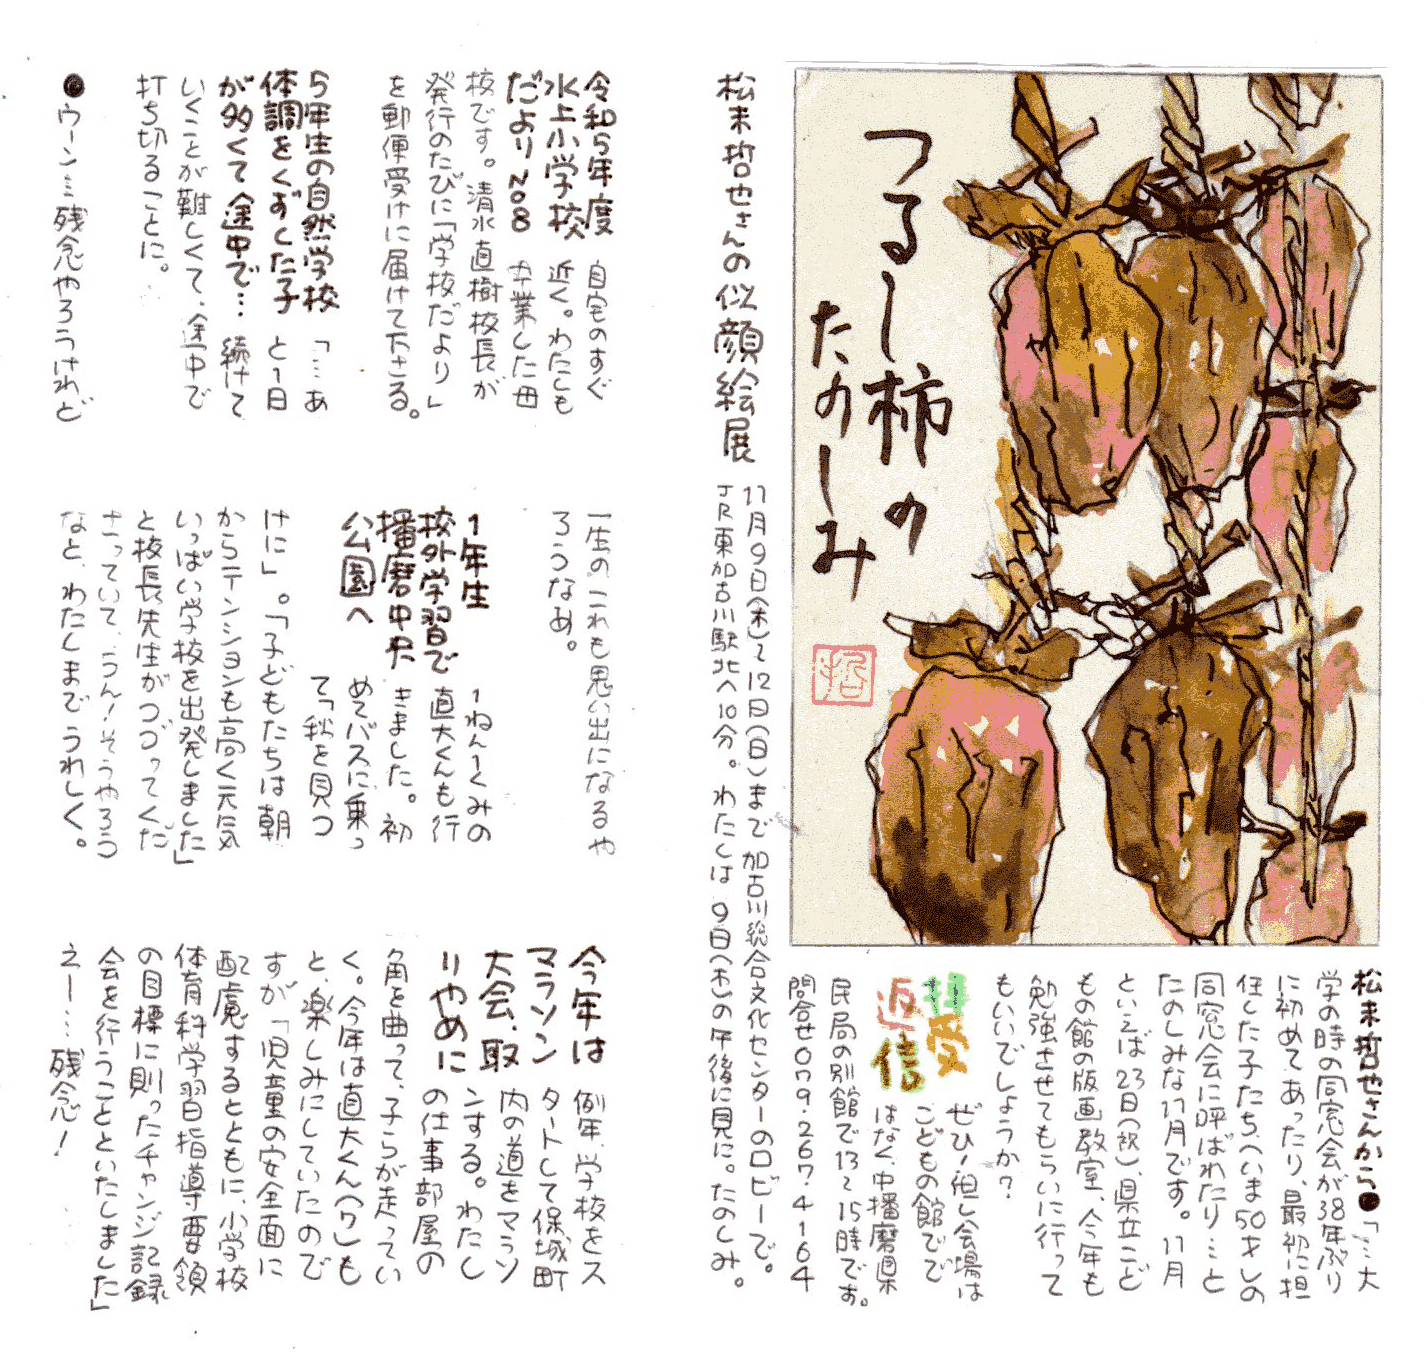 つるし柿の
たのしみ
哲
松末哲也さんから●「…大
学の時の同窓会が38年ぶり
に初めてあったり、最初に担
任した子たち(いま50才)の
同窓会に呼ばれたり…と
たのしみな11月です。11月
といえば23日(祝)、県立こど
もの館の版画教室、今年も
勉強させてもらいに行って
もいいでしょうか?
拝受
返信
ぜひ!但し会場は
こどもの館でで
はなく、中播磨県
民局の別館で13〜15時です。
問合せ079・267・4164
松末哲也さんの似顔絵展
11月9日(木)〜12日(日)まで加古川総合文化センターのロビーで。
JR東加古川駅北へ10分。わたしは9日(木)の午後に見に。たのしみ。
令和5年度
水上小学校
だよりNo8
自宅のすぐ
近く。わたしも
卒業した母
校です。清水直樹校長が
発行のたびに「学校だより」
を郵便受けに届けて下さる。
5年生の自然学校
体調をくずした子
が多くて途中で…
「…あ
と1日
続けて
いくことが難しくて、途中で
打ち切ることに。
●ウーン…残念やろうけれど
一生の、これも思い出になるや
ろうなぁ。
1年生
校外学習で
播磨中央
公園へ
1ねん1くみの
直大くんも行
きました。初
めてバスに乗っ
て「秋を見つ
けに」。「子どもたちは朝
からテンションも高く元気
いっぱい学校を出発しました」
と校長先生がつづってくだ
さっていて、うん!そうやろう
なと、わたしまでうれしく。
今年は
マラソン
大会、取
りやめに
例年、学校をス
タートして保城町
内の道をマラソ
ンする。わたし
の仕事部屋の
角を曲って、子らが走ってい
く。今年は直大くん(7)も
と、楽しみにしていたので
すが「児童の安全面に
配慮するとともに、小学校
体育科学習指導要領
の目標に則ったチャレンジ記録
会を行うことといたしました」
えー…残念!